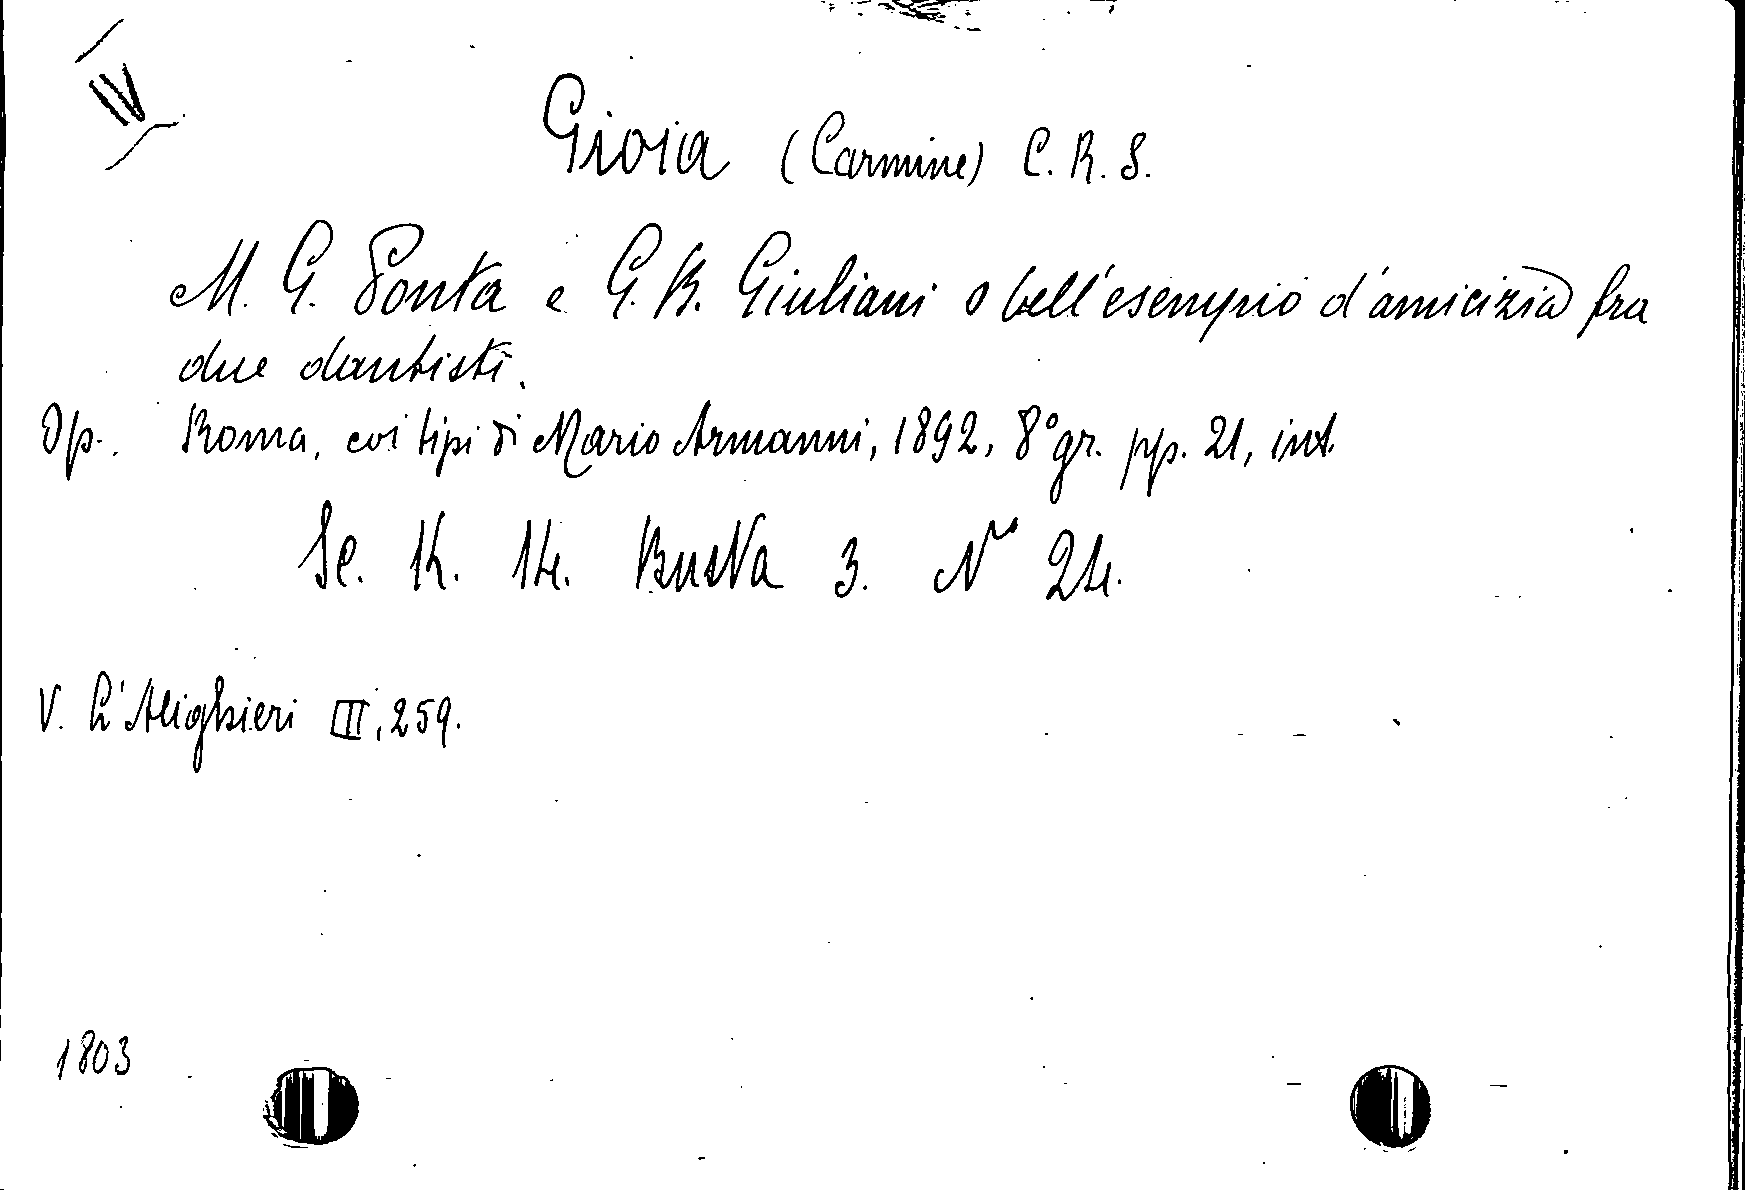 IV
Gioia (Carmine) C. R. S.
M. G. Ponta e G. B. Giuliani o bell'esempio d'amicizia fra
due dantisti.
Op. Roma, coi tipi di Mario Armanni, 1892, 8° gr. pp. 21, int.
Sc. K. 14. Busta 3. N° 24.
V. L'Alighieri III, 259.
1803